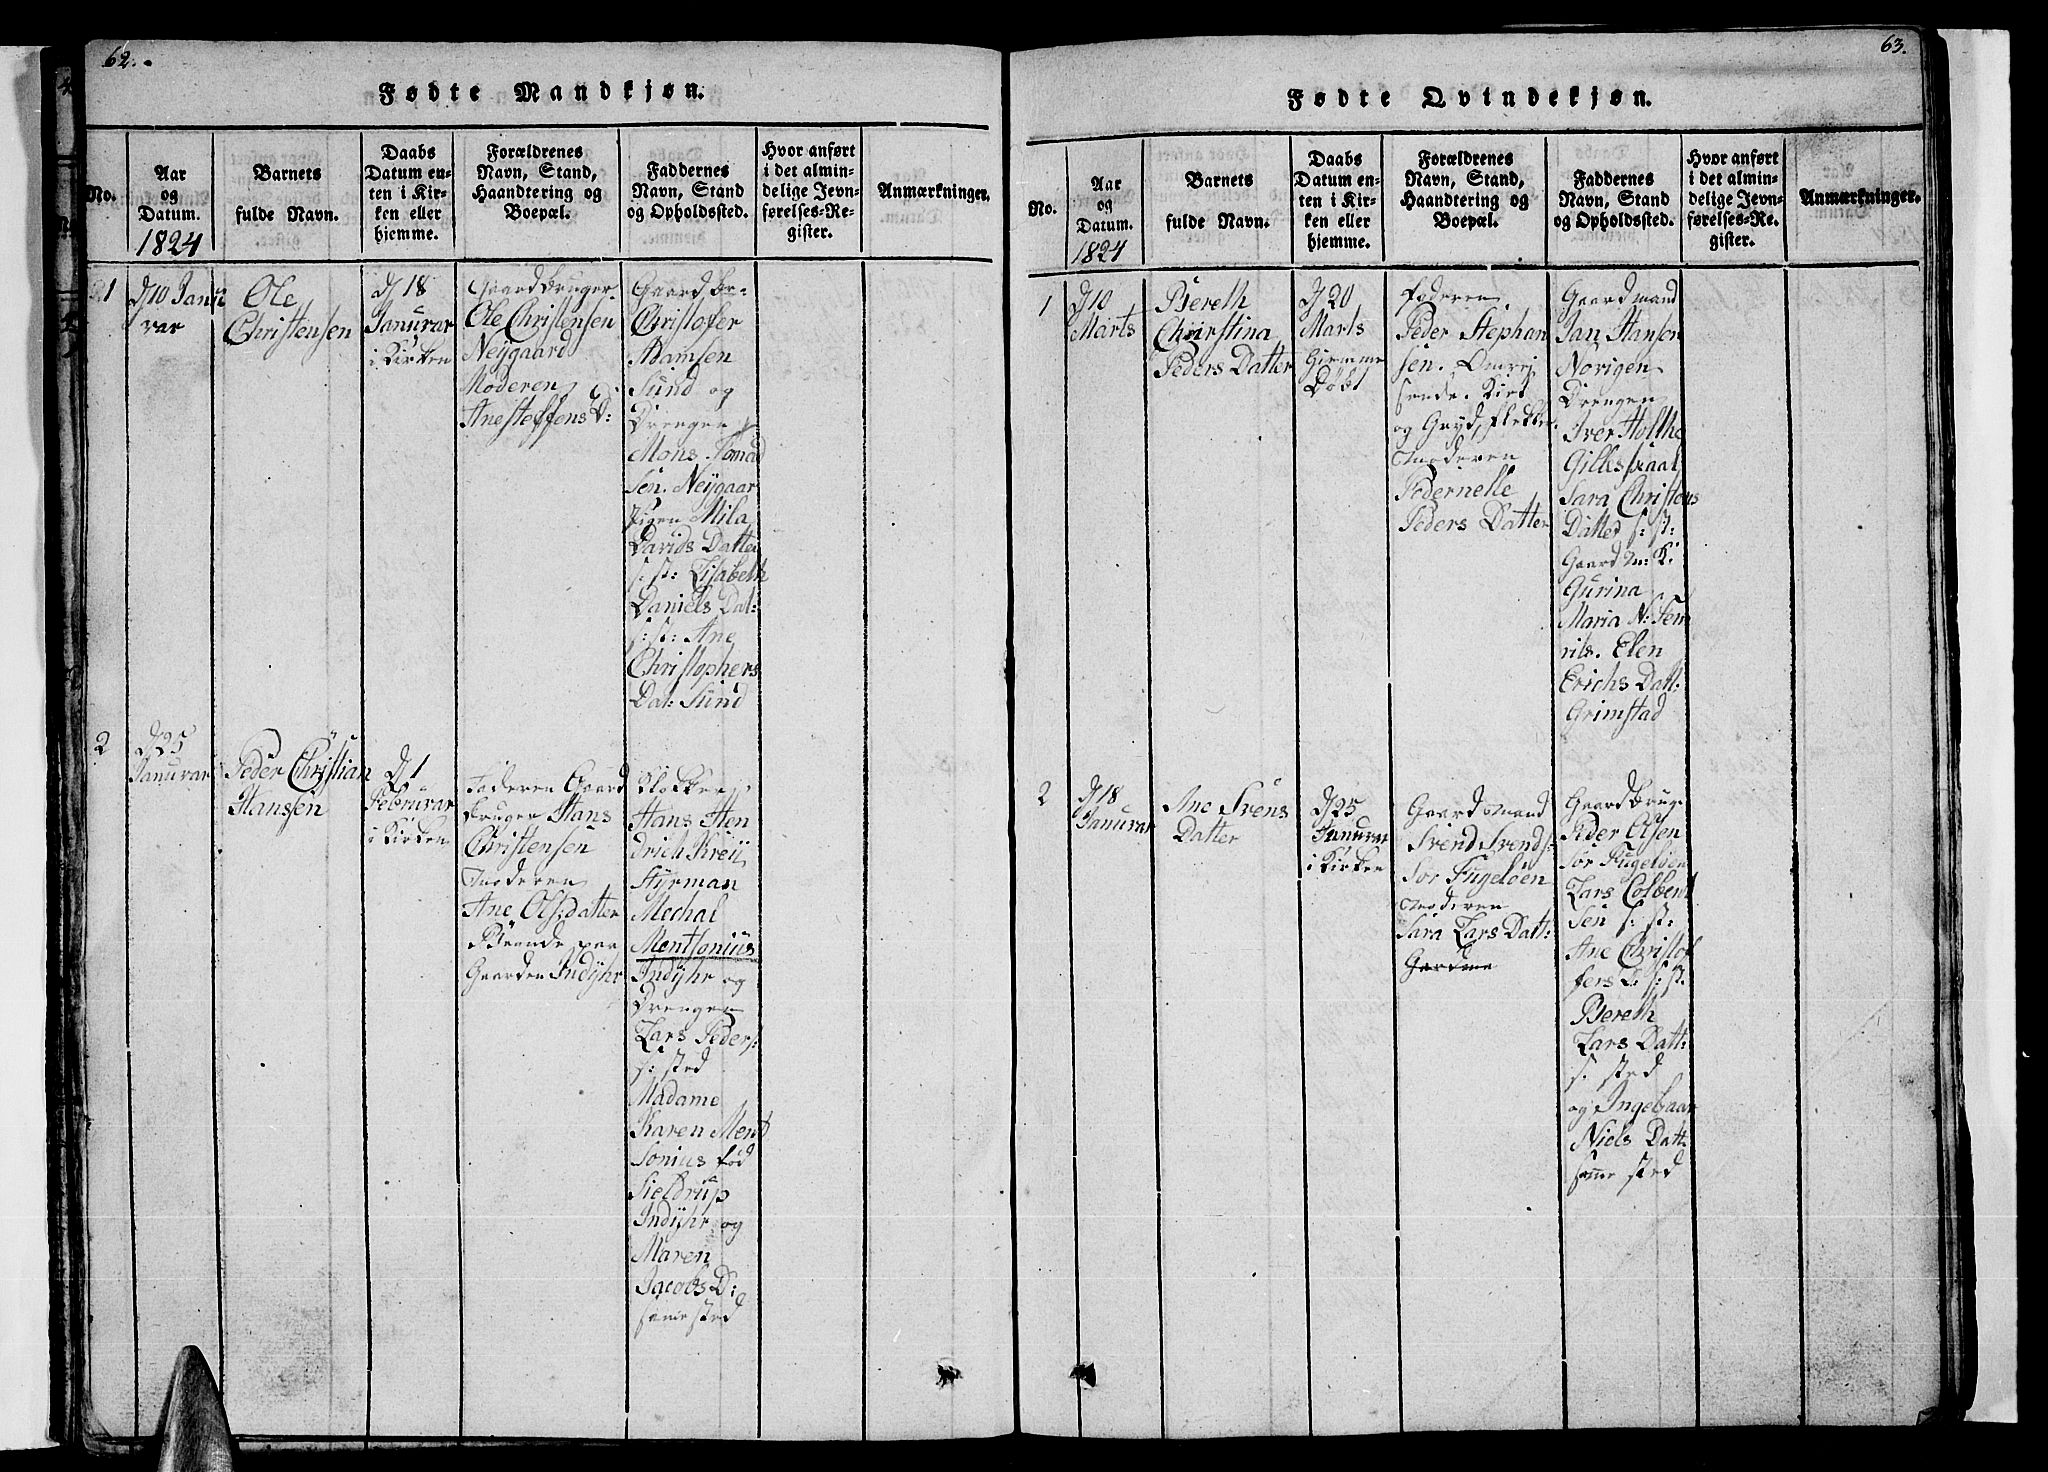 62.
Fødte Mandkjøn.
No.
Aar
og
Datum.
1824
Barnets
fulde Navn.
Daabs
Datum en-
ten i Kir-
ken eller
hjemme.
Forældrenes
Navn, Stand,
Haandtering og
Boepæl.
Faddernes
Navn, Stand
og Opholdssted.
Hvor anført
i det almin-
delige Jevn-
førelses-Re-
gister.
Anmærkninger.
1
D 10 Janu
var
Ole
Christensen
D 18
Janurar
i Kirken
Gaardbruger
Ole Christensen
Neygaard
Moderen
Ane Steffens D:
Gaardbr-
Christofer
Adamsen
Sund og
Drengen
Mons Tomad
sen. Neÿgaar
Pigen Mila
Davids Datter
s: st: Lisabeth
Daniels Dat:
s: st: Ane
Christophers
Dat: Sund
2
D 25
Janurar
Peder Christian
Hansen
D 1
Februrar
i Kirken
Faderen Gaard
bruger Hans
Christensen
Moderen
Ane Olsdatter
Boende paa
Gaarden Indÿhr
Klokker
Hans Hen
drich Kreÿ
Styrman
Mechal
Mentsonius
Indÿhr og
Drengen
Lars Peders:
s: sted
Madame
Karen Ment
sonius fød
Sieldrup
Indÿhr og
Maren
Jacobs D:
samme sted
63.
Fødte Qvindekjøn.
No.
Aar
og
Datum.
1824
Barnets
fulde Navn.
Daabs
Datum en-
ten i Kir-
ken eller
hjemme.
Forældrenes
Navn, Stand,
Haandtering og
Boepæl.
Faddernes
Navn, Stand
og Opholdssted.
Hvor anført
i det almin-
delige Jevn-
førelses-Re-
gister.
Anmærkninger.
1
D 10
Marts
Bereth
Christina
Peders Datter
D 20
Marts
Giemme
Døbt
Faderen
Peder Stephan
sen. Omrej
sende.
og
Moderen
Pedernelle
Peders Datter
Gaardmand
Jan Hansen
Norigen
Drengen
Iver Holthe
Gillesskaal
Sara Christens
Datter s: st:
Gaard m: K:
Gurina
Maria N: Fen
ris. Elen
Erichs Datt:
Grimstad
2
D 18
Janurar
Ane Svens
Datter
D 25
Janurar
i Kirken
Gaardmand
Svend Svends:
Sør Fugeløen
Moderen
Sara Lars Datt:
Gaardbrug
Peder Olsen
Sør Fugeløen
Lars Colbent
sen s: st:
Ane Christof
fers D s: st.
Bereth
Lars Datt:
s. sted
og Ingebaar
Niels Datt
samme sted